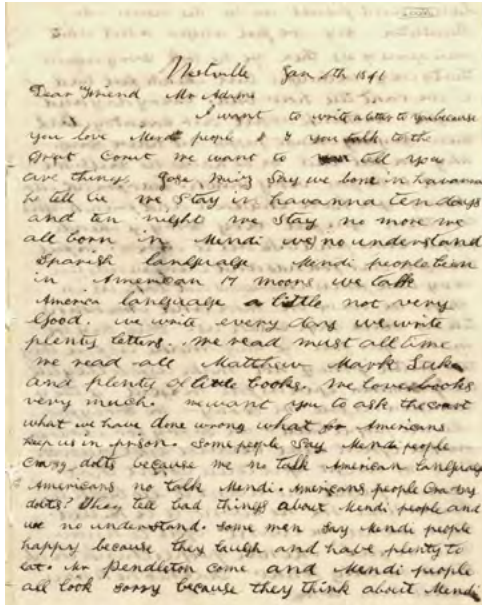 Westville Jan 4th 1841
Dear Friend Mr Adams
I want to write a letter to you because
you love Mendi people & you talk to the
Great Court we want to tell you
one things Jose Ruiz Say we born in havanna
he tell lie we stay in havanna ten days
and ten night we stay no more we
all born in Mendi we no understand
Spanish language Mendi people been
in American 17 moons we talk
America language a little not very
Good. we write every day we write
plenty letters. we read most all time
we read all Matthew Mark Luke
and plenty of little books. we love books
very much. we want you to ask the court
what we have done wrong what for Americans
keep us in prison. Some people Say Mendi people
crazy dolts because we no talk American language
Americans no talk Mendi. Americans people crazy
dolts? They tell bad things about Mendi people and
we no understand. Some men Say Mendi people
happy because they laugh and have plenty to
eat. Mr Pendleton come and Mendi people
all look sorry because they think about Mendi